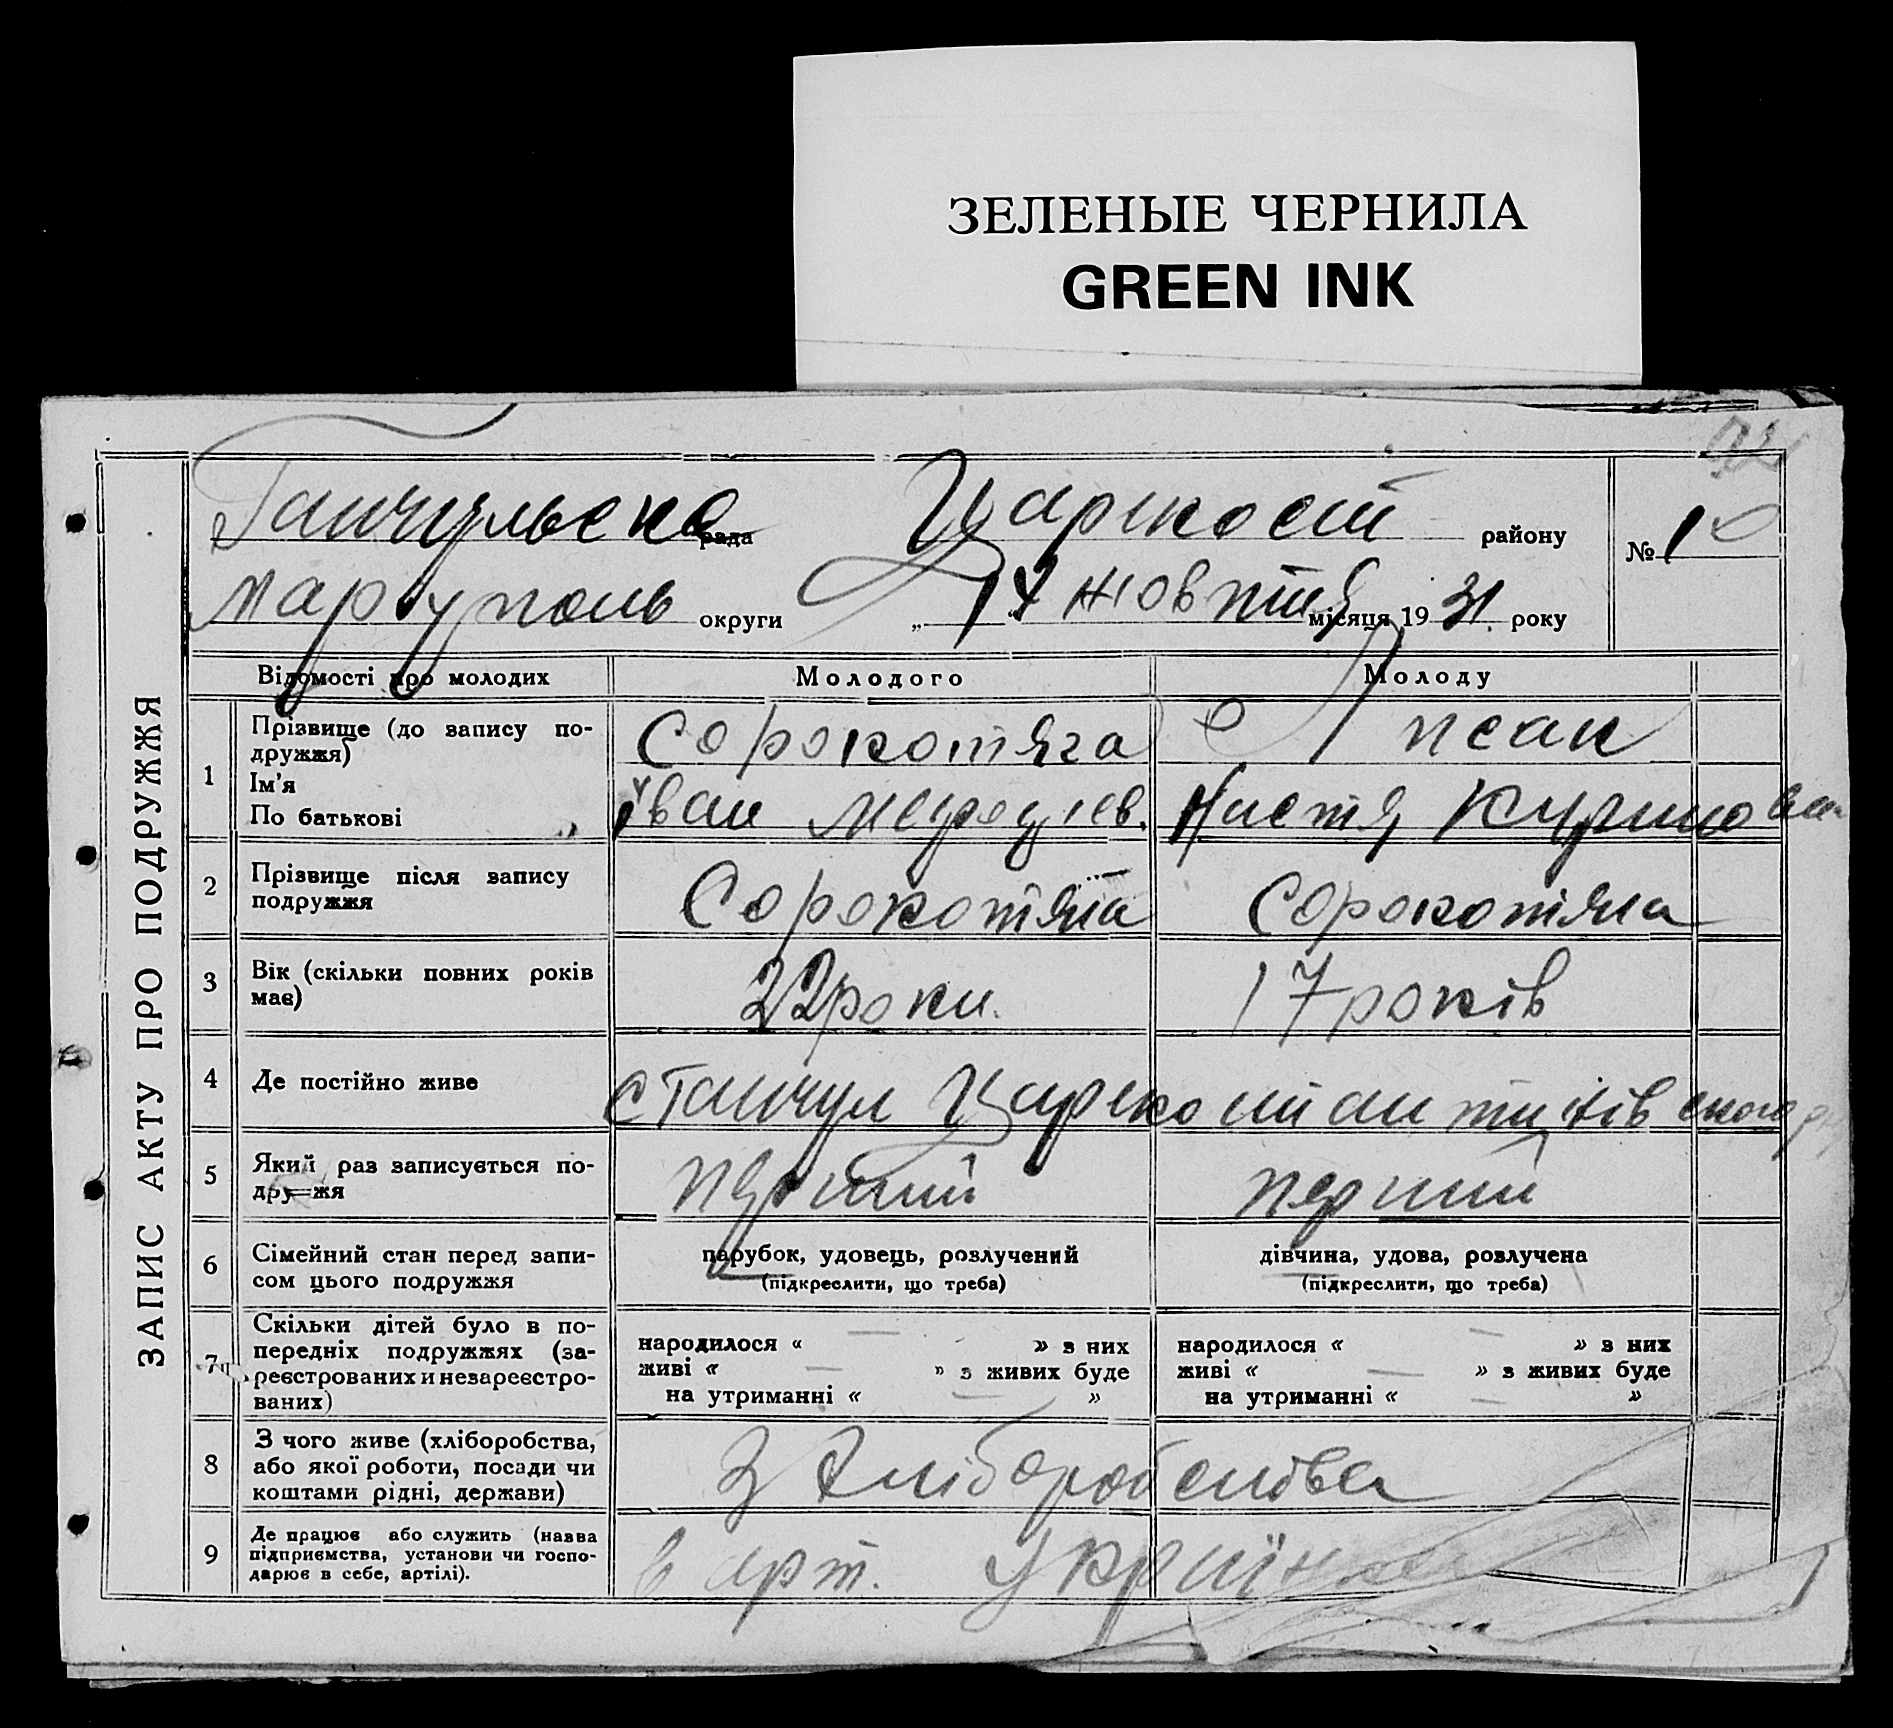 ЗЕЛЕНЫЕ ЧЕРНИЛА
GREEN INK
ЗАПИС АКТУ ПРО ПОДРУЖЖЯ
Ганчульська рада Царкост району № 10
Маруполь округи „ 14 жовтня місяця 1931 року
Відомості про молодих Молодого Молоду
1 Прізвище (до запису по-
дружжя)
Сорокотяга Псан
Ім'я
По батькові
Іван Мефодіев. Настя
2 Прізвище після запису
подружжя
Сорокотяга Сорокотяга
3 Вік (скільки повних років
має)
22 роки. 17 років
4 Де постійно живе
с Ганчул Царекостантинівского р
5 Який раз записується по-
дружжя
перший перший
6 Сімейний стан перед запи-
сом цього подружжя
парубок, удовець, розлучений дівчина, удова, розлучена
(підкреслити, що треба) (підкреслити, що треба)
7 Скільки дітей було в по-
передніх подружжях (за-
реєстрованих и незареєстро-
ваних)
народилося « — » з них народилося « — » з них
живі « — » з живих буде живі « — » з живих буде
на утриманні « — » на утриманні « — »
8 З чого живе (хліборобства,
або якої роботи, посади чи
коштами рідні, держави)
З Хліборобства
9 Де працює або служить (назва
підприємства, установи чи госпо-
дарює в себе, артілі).
в арт.